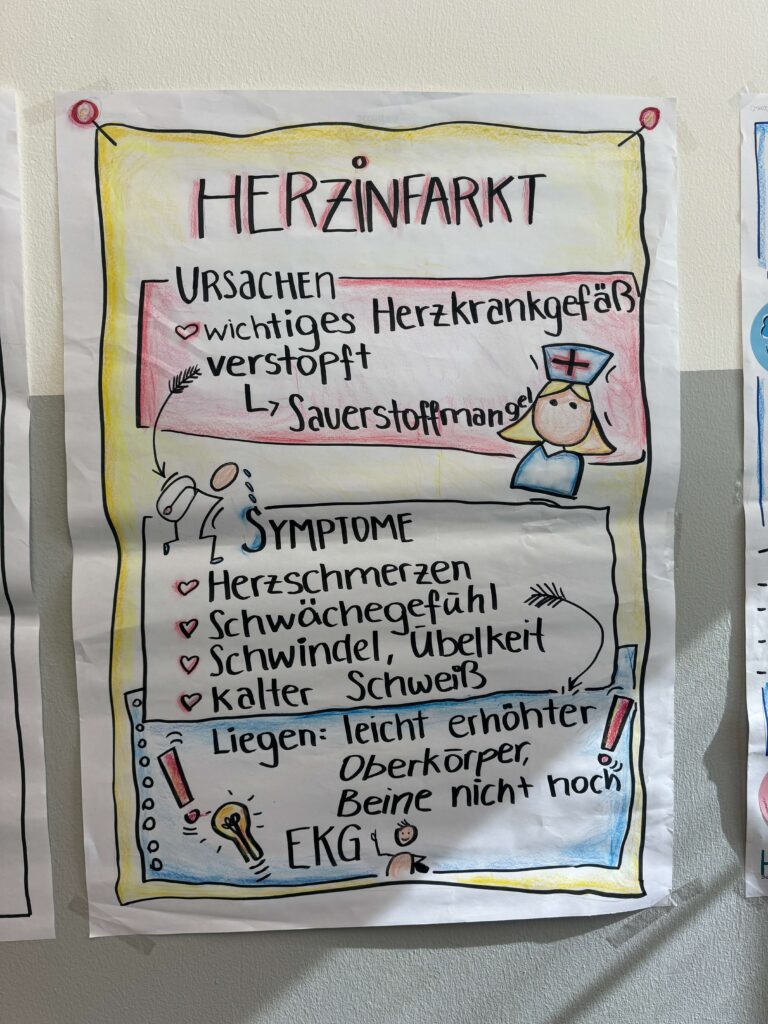 HERZINFARKT
URSACHEN
wichtiges Herzkrankgefäß
verstopft
↳ Sauerstoffmangel
SYMPTOME
Herzschmerzen
Schwächegefühl
Schwindel, Übelkeit
Kalter Schweiß
Liegen: leicht erhöhter
Oberkörper,
Beine nicht hoch
EKG